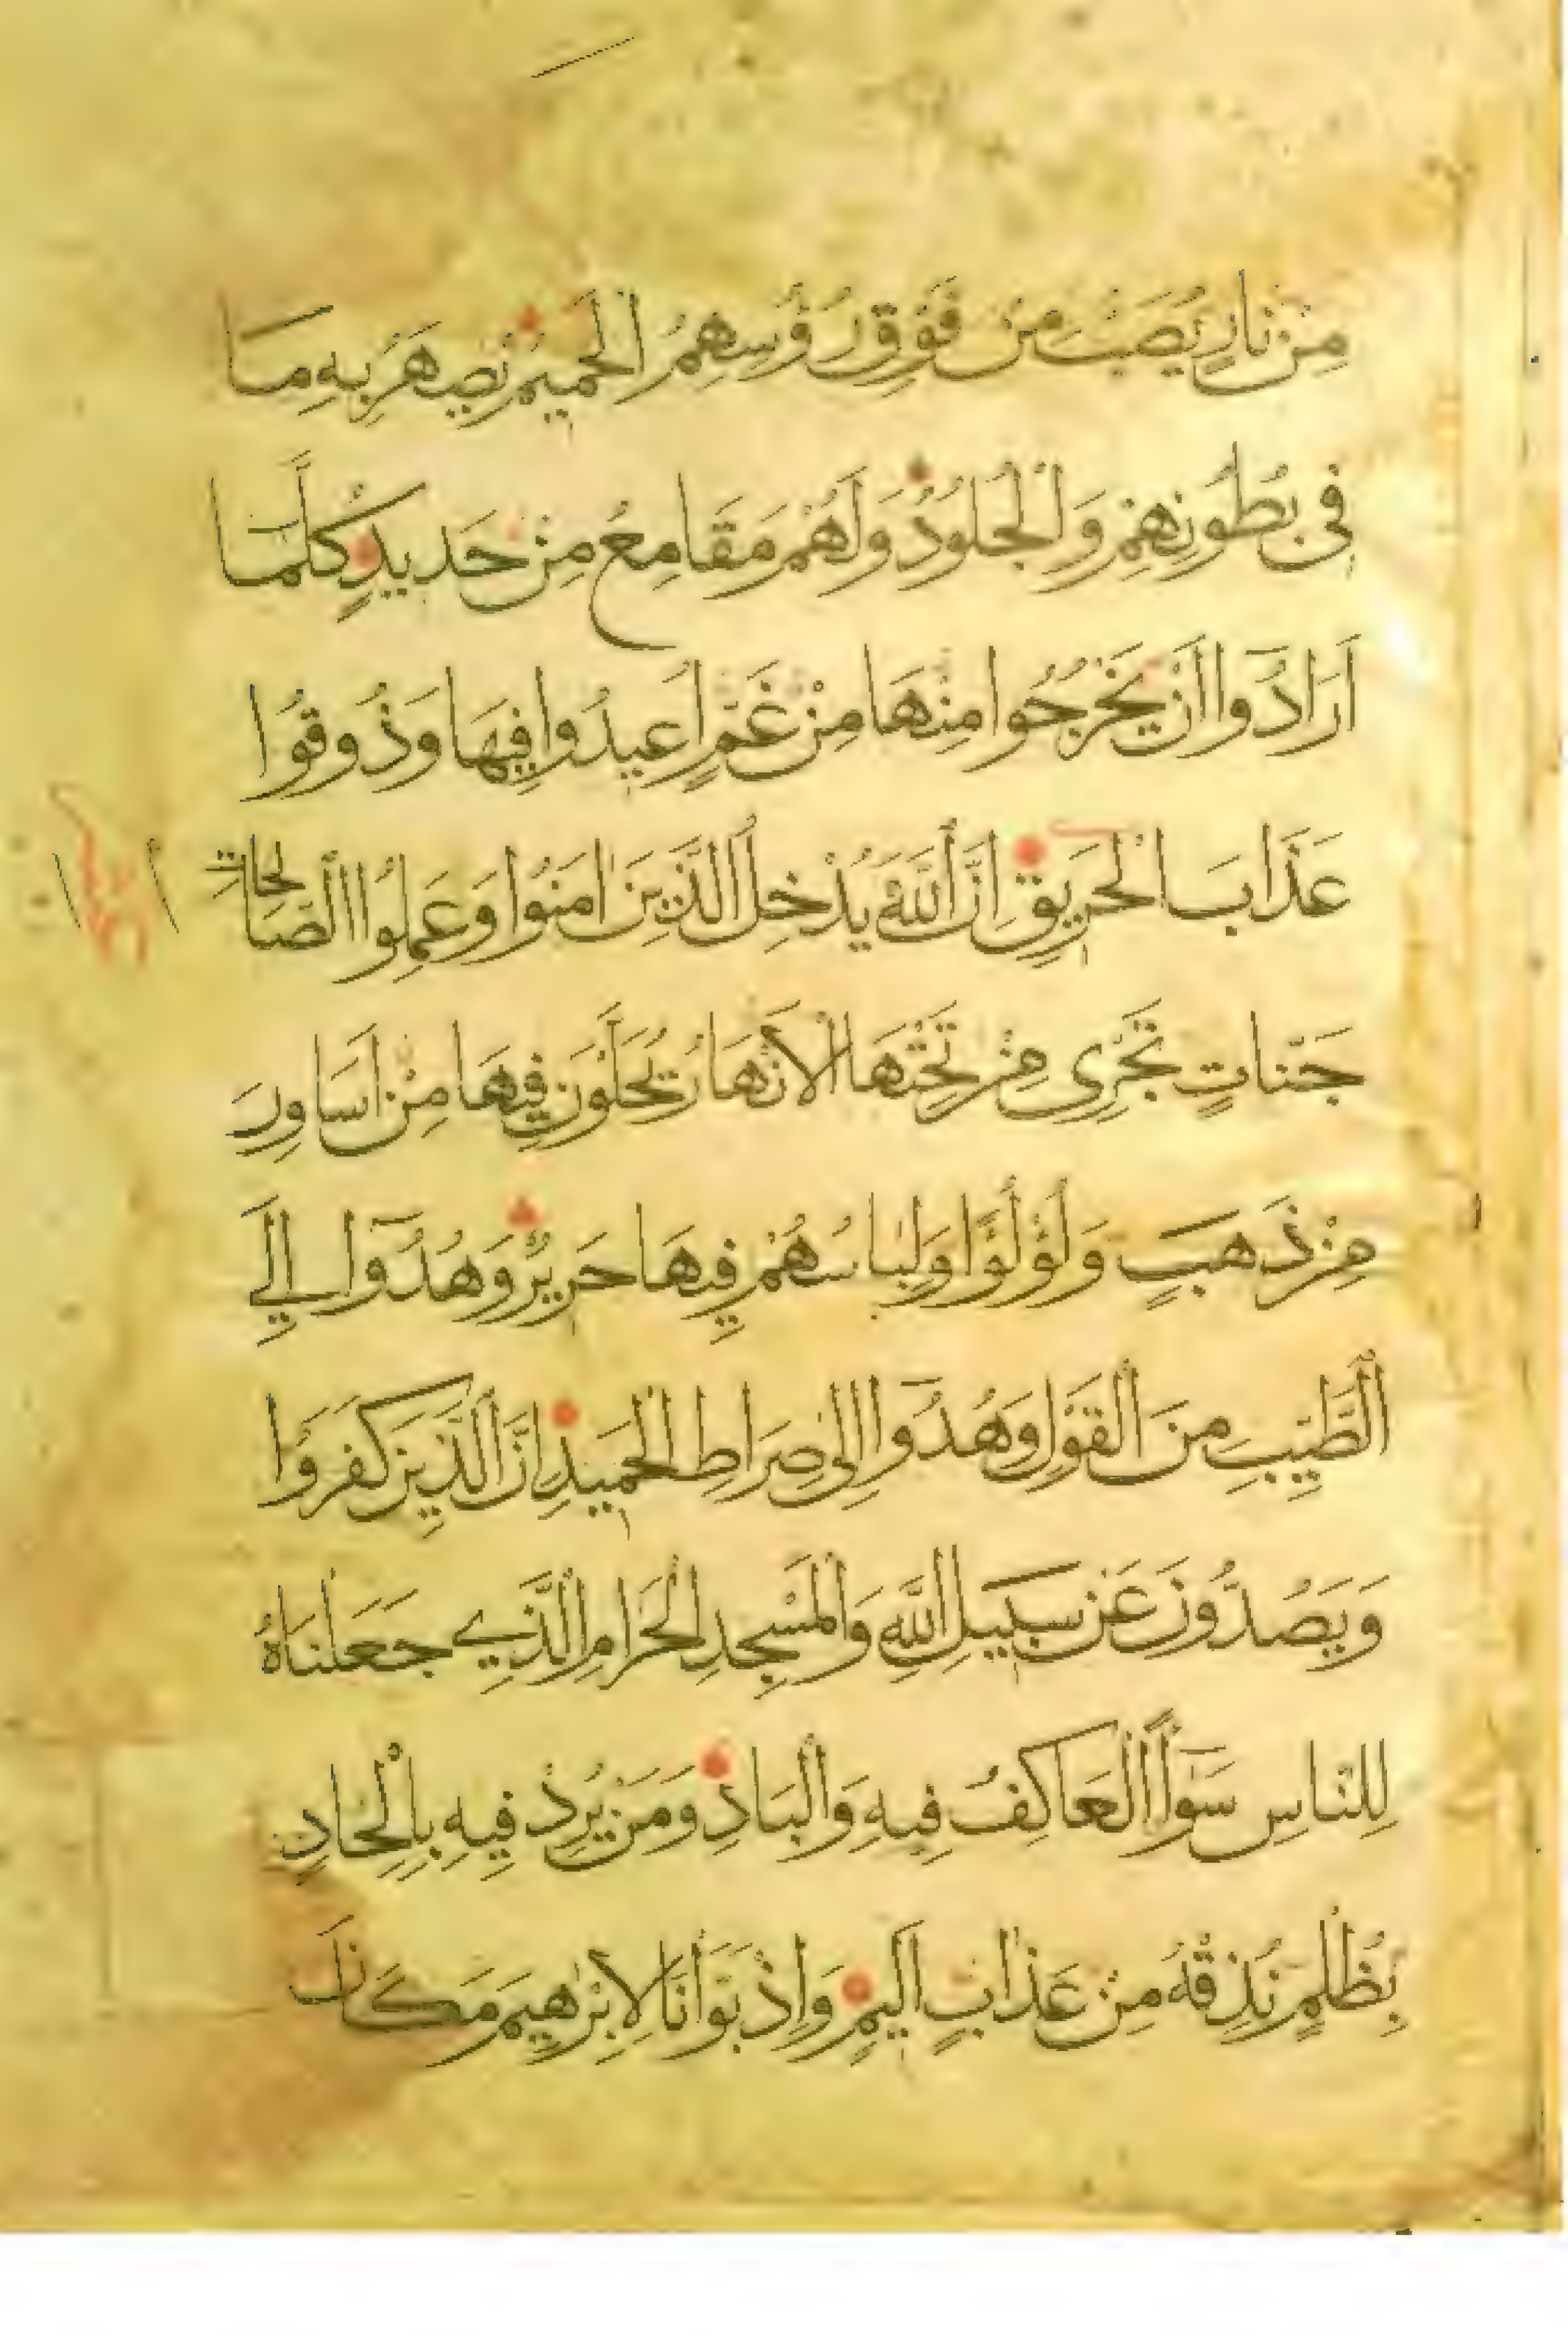 مِنْ نَارٍ يُصَبُّ مِنْ فَوْقِ رُؤُسِهِمُ الْحَمِيمُ يُصْهَرُ بِهِ مَا
فِى بُطُونِهِمْ وَالْجُلُودُ وَلَهُمْ مَقَامِعُ مِنْ حَدِيدٍ كُلَّمَا
اَرَادُوا اَنْ يَخْرُجُوا مِنْهَا مِنْ غَمٍّ اُعِيدُوا فِيهَا وَذُوقُوا
عَذَابَ الْحَرِيقِ اِنَّ اللّٰهَ يُدْخِلُ الَّذِينَ اٰمَنُوا وَعَمِلُوا الصَّالِحَاتِ
جَنَّاتٍ تَجْرِى مِنْ تَحْتِهَا الْاَنْهَارُ يُحَلَّوْنَ فِيهَا مِنْ اَسَاوِرَ
مِنْ ذَهَبٍ وَلُؤْلُؤًا وَلِبَاسُهُمْ فِيهَا حَرِيرٌ وَهُدُوٓا اِلَى
الطَّيِّبِ مِنَ الْقَوْلِ وَهُدُوٓا اِلٰى صِرَاطِ الْحَمِيدِ اِنَّ الَّذِينَ كَفَرُوا
وَيَصُدُّونَ عَنْ سَبِيلِ اللّٰهِ وَالْمَسْجِدِ الْحَرَامِ الَّذِي جَعَلْنَاهُ
لِلنَّاسِ سَوَآءً الْعَاكِفُ فِيهِ وَالْبَادِ وَمَنْ يُرِدْ فِيهِ بِاِلْحَادٍ
بِظُلْمٍ نُذِقْهُ مِنْ عَذَابٍ اَلِيمٍ وَاِذْ بَوَّاْنَا لِاِبْرٰهِيمَ مَكَانَ